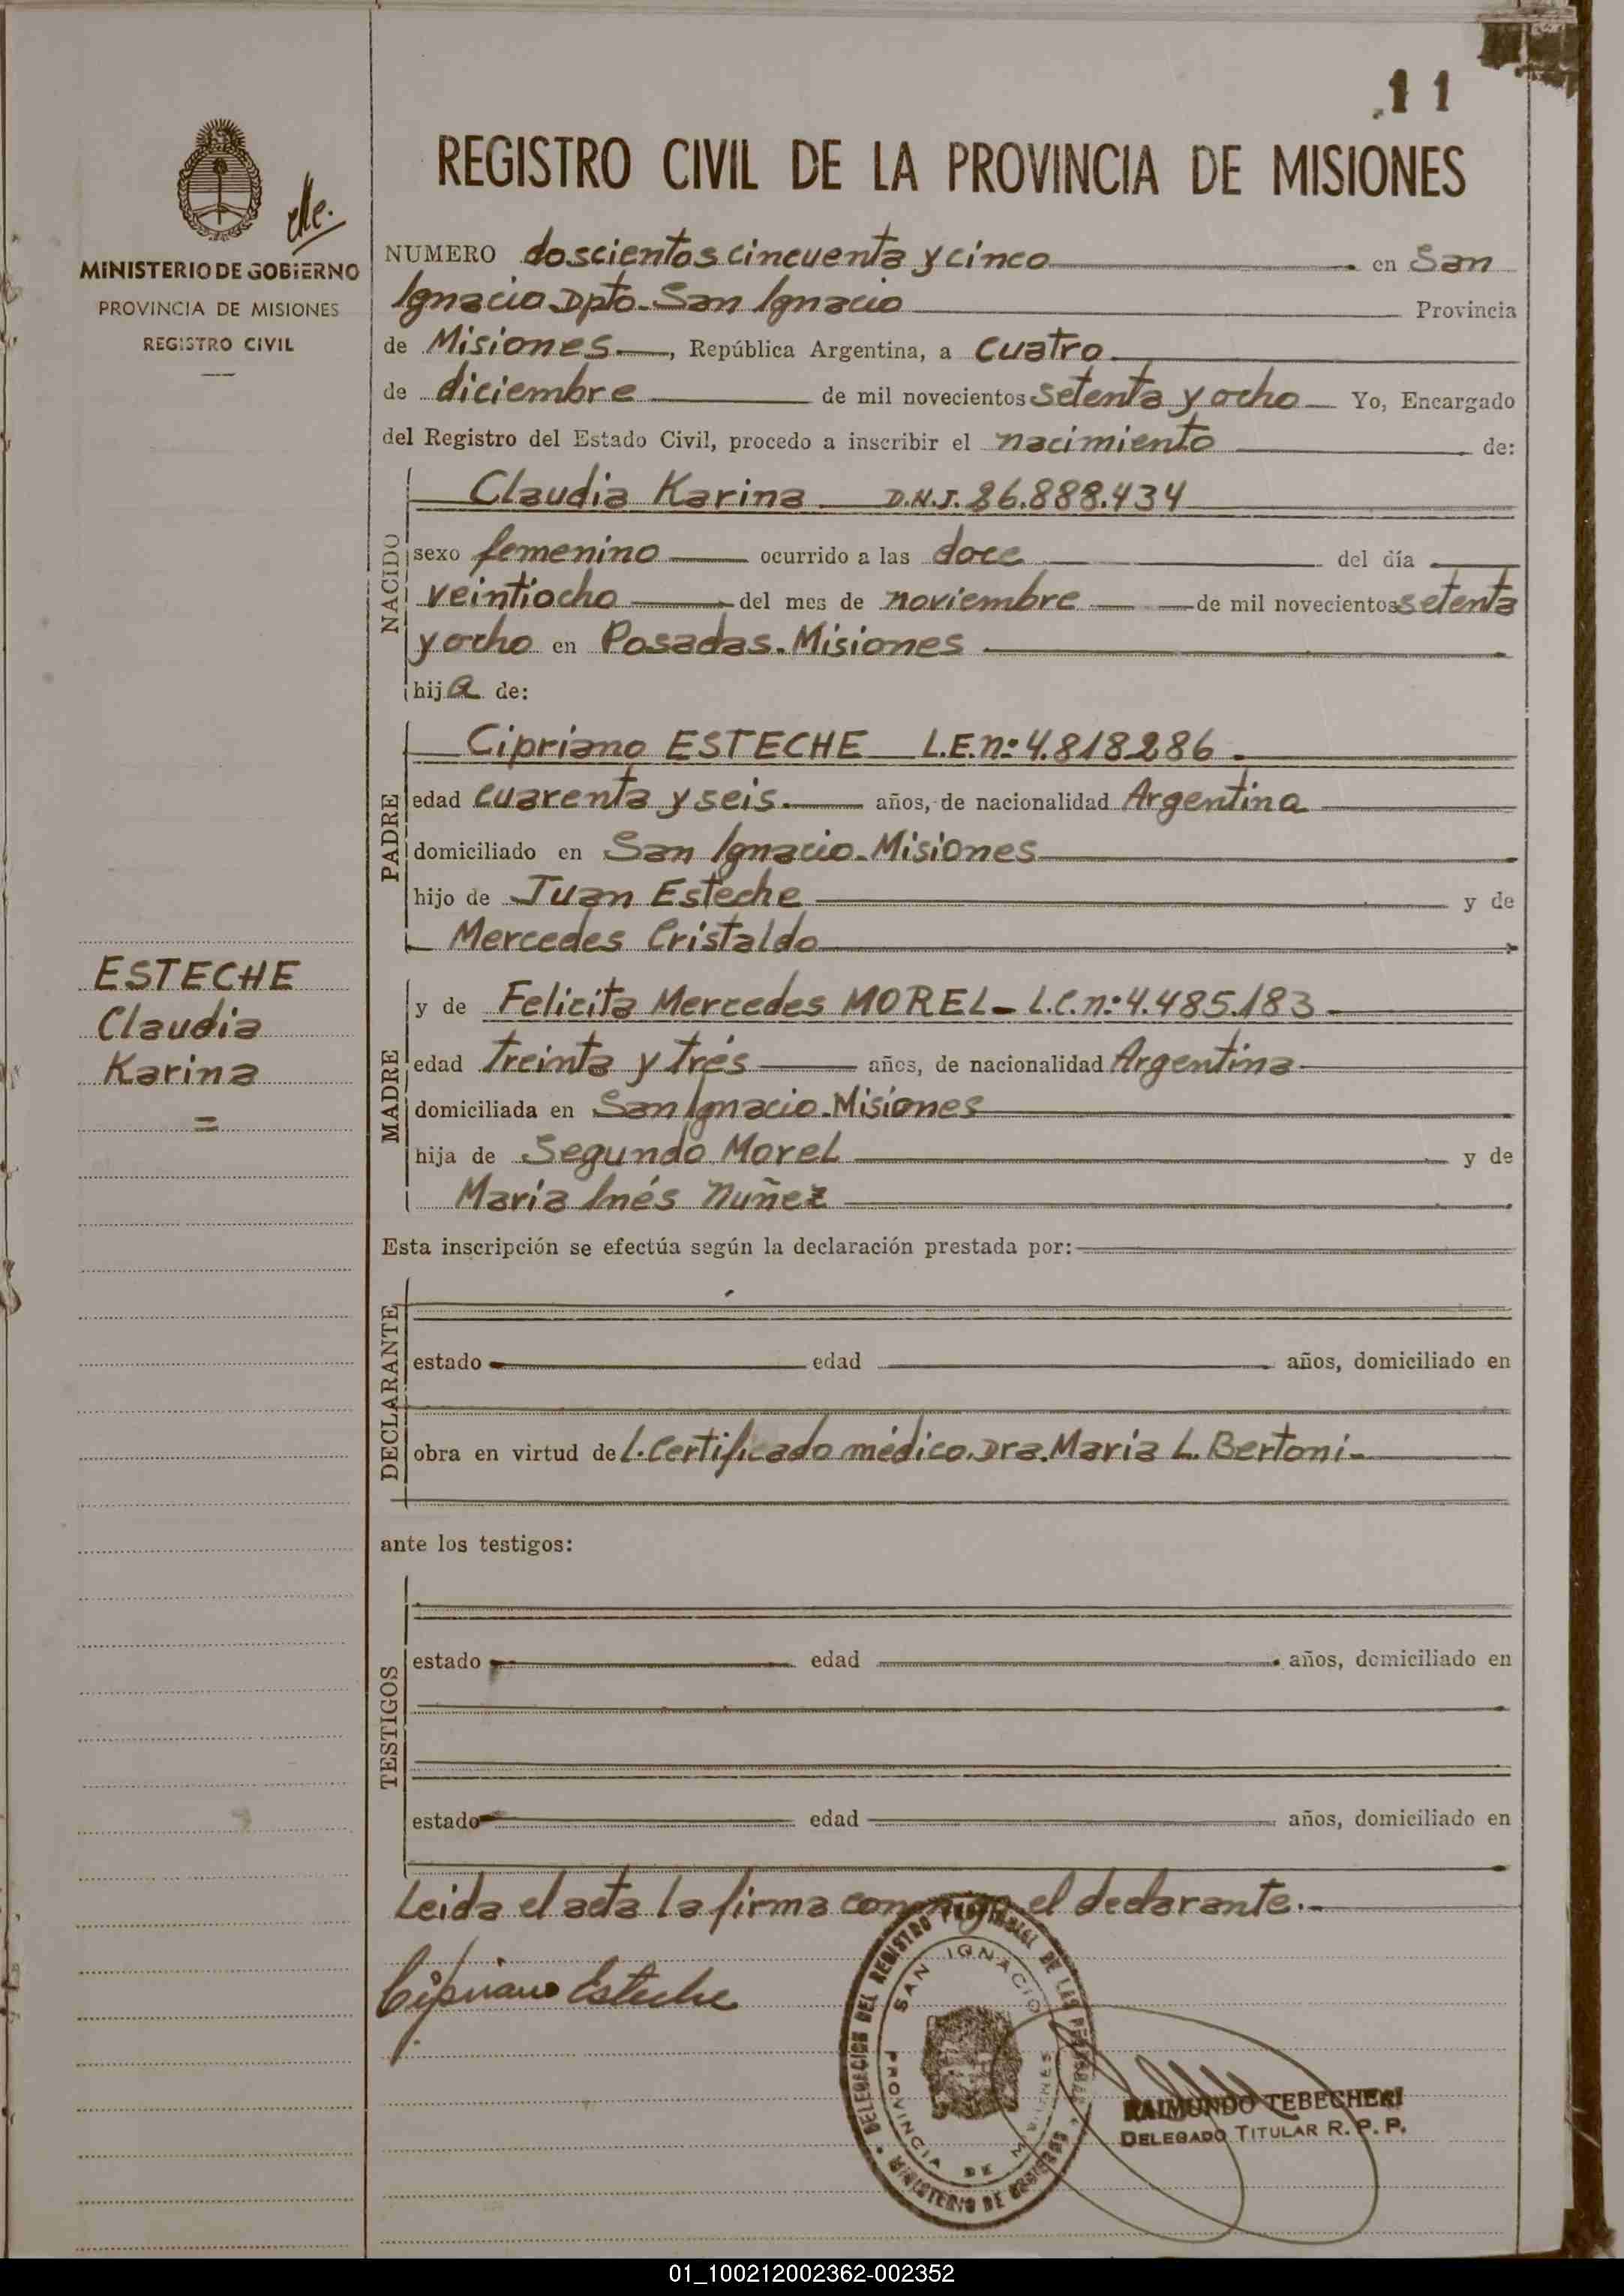 11
REGISTRO CIVIL DE LA PROVINCIA DE MISIONES
MINISTERIO DE GOBIERNO
PROVINCIA DE MISIONES
REGISTRO CIVIL
NUMERO doscientos cincuenta y cinco en San
Ignacio Dpto. San Ignacio Provincia
de Misiones, República Argentina, a cuatro
de diciembre de mil novecientos setenta y ocho Yo, Encargado
del Registro del Estado Civil, procedo a inscribir el nacimiento de:
NACIDO
Claudia Karina D.N.I. 26.888.434
sexo femenino ocurrido a las doce del día
veintiocho del mes de noviembre de mil novecientos setenta
y ocho en Posadas. Misiones
hija de:
PADRE
Cipriano ESTECHE L.E.nº 4.818286.
edad cuarenta y seis. años, de nacionalidad Argentina
domiciliado en San Ignacio. Misiones
hijo de Juan Esteche y de
Mercedes Cristaldo
ESTECHE
Claudia
Karina
=
MADRE
y de Felicita Mercedes MOREL - L.C.nº 4.485.183
edad treinta y trés años, de nacionalidad Argentina
domiciliada en San Ignacio. Misiones
hija de Segundo Morel y de
Maria Inés Nuñez
Esta inscripción se efectúa según la declaración prestada por:
DECLARANTE
estado edad años, domiciliado en
obra en virtud del. Certificado médico. Dra. Maria L. Bertoni.
ante los testigos:
TESTIGOS
estado edad años, domiciliado en
estado edad años, domiciliado en
Leida el acta la firma conmigo el declarante.
Cipriano Esteche
DELEGACION DEL REGISTRO PROVINCIAL DE LAS PERSONAS
SAN IGNACIO
PROVINCIA DE MISIONES
MINISTERIO DE GOBIERNO
RAIMUNDO TEBECHERI
DELEGADO TITULAR R. P. P.
01_100212002362-002352